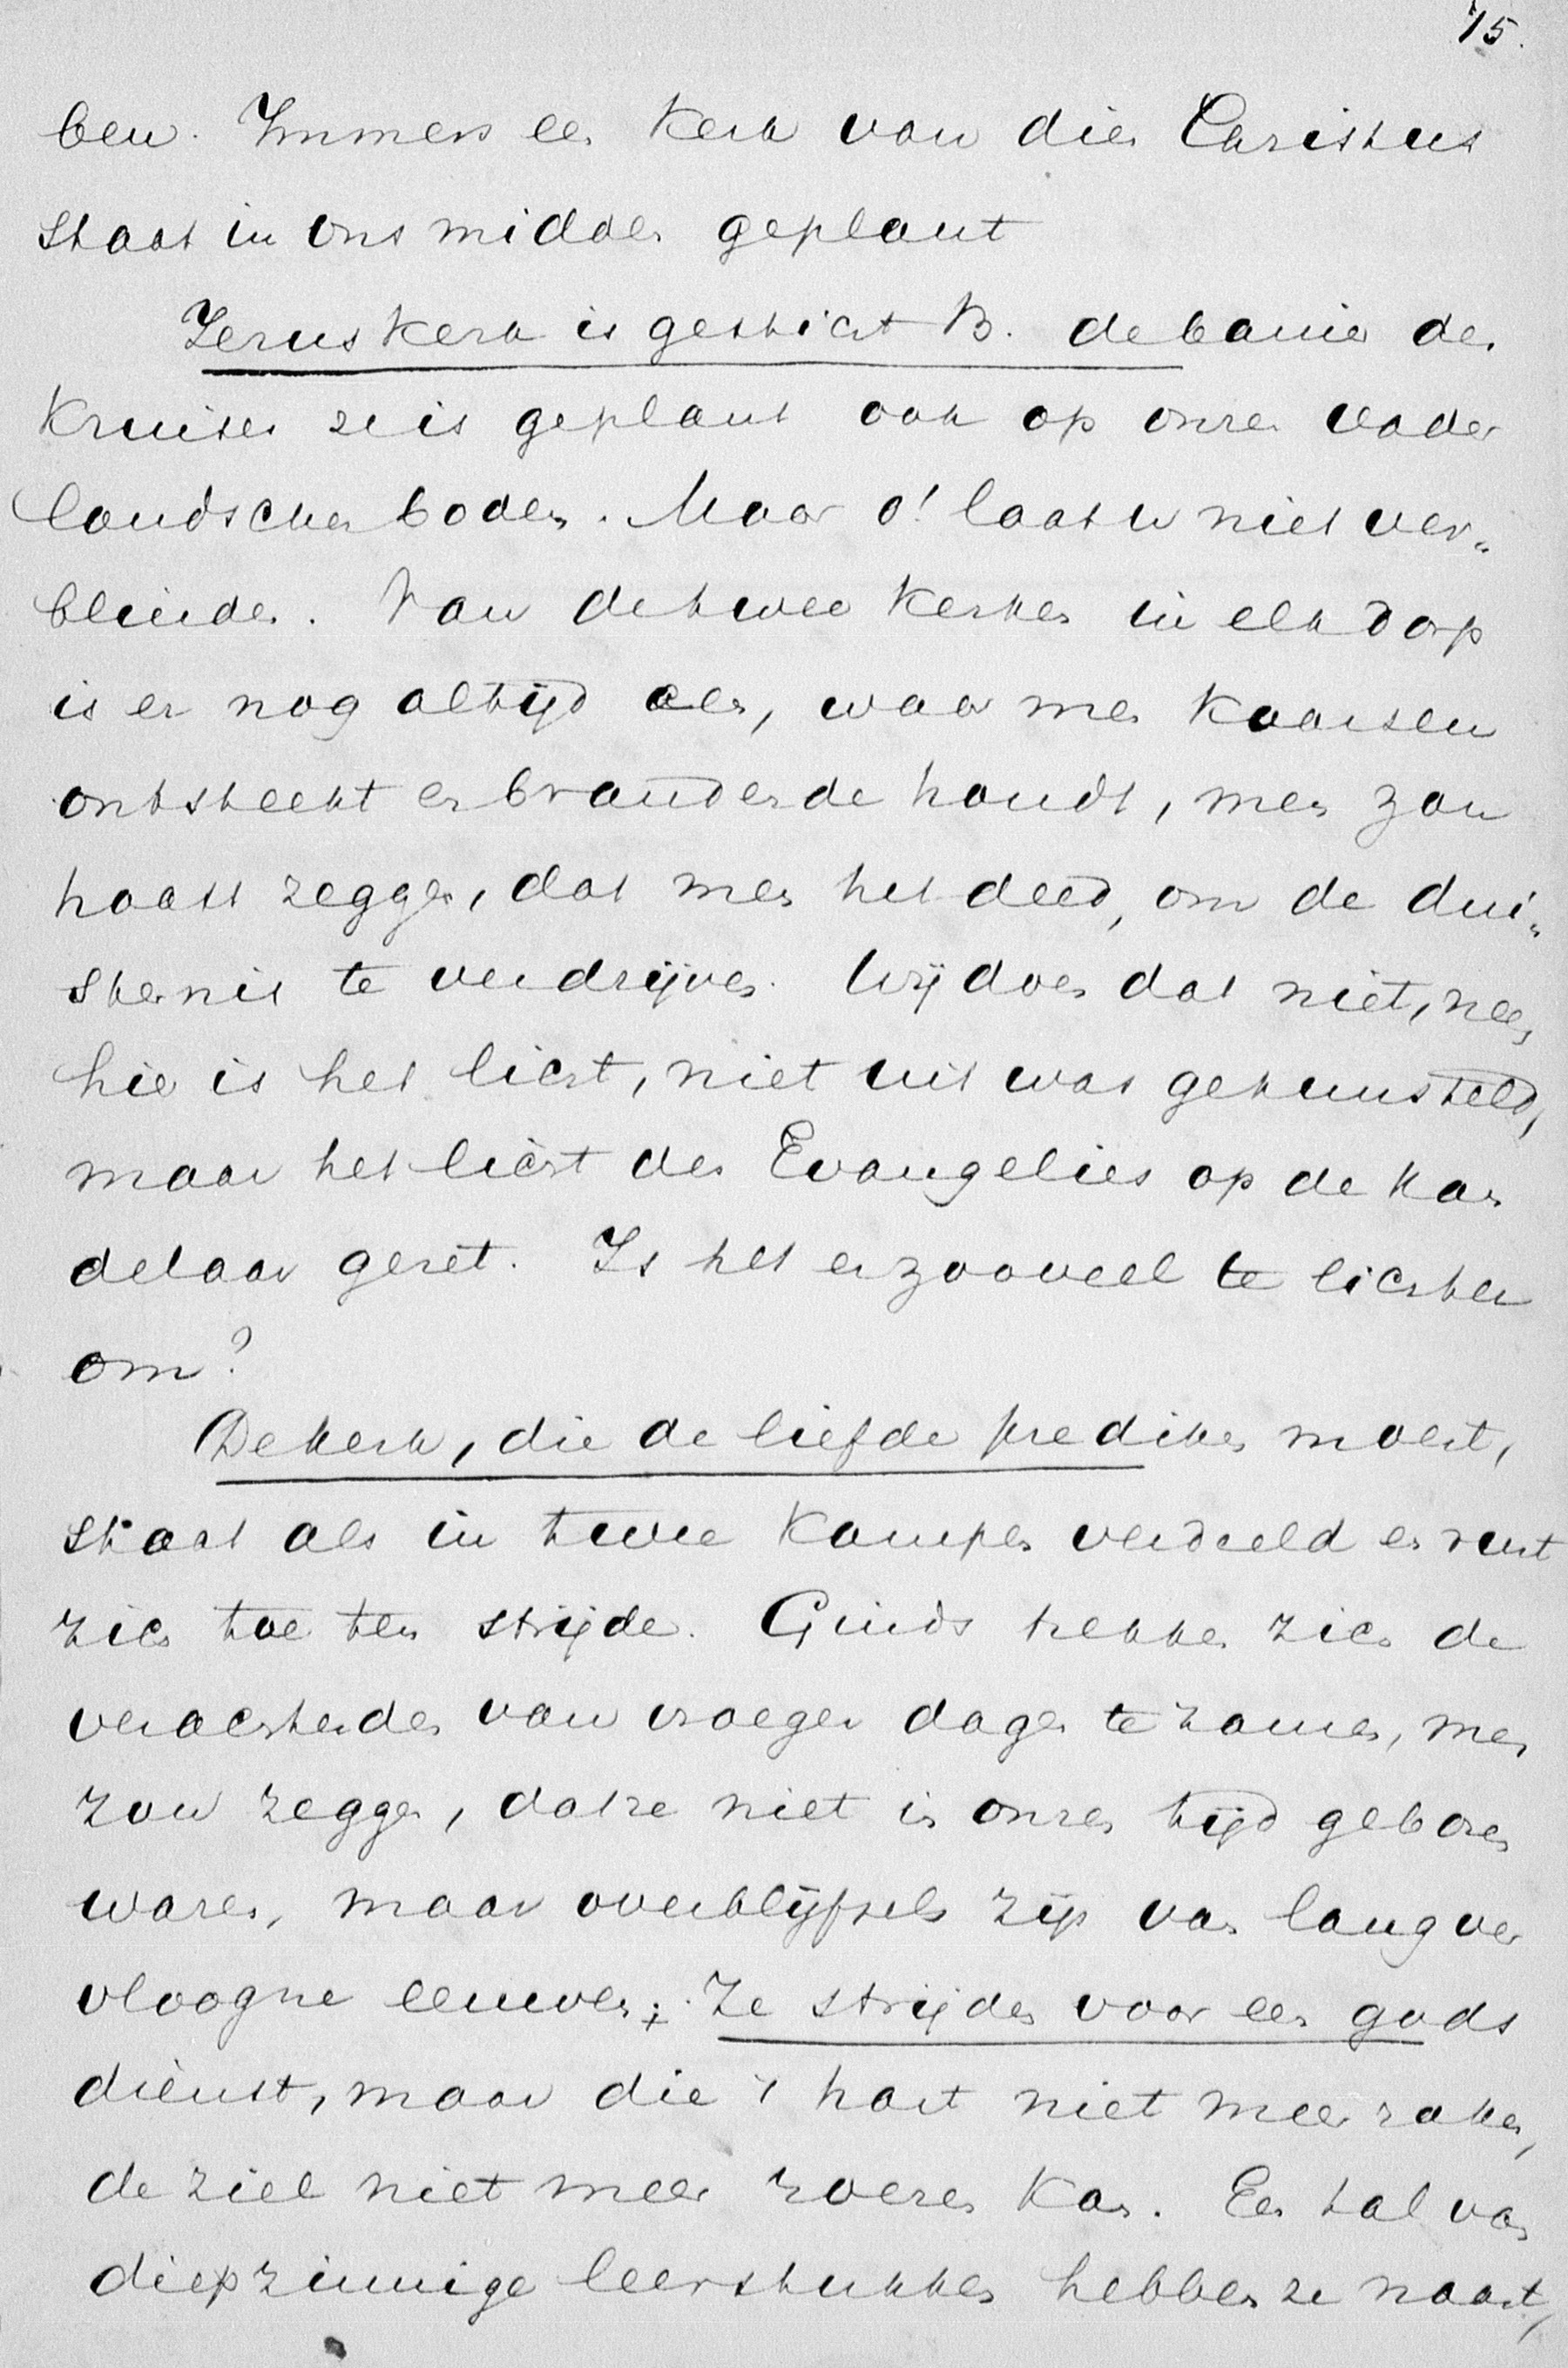 75.
ben. Immers een kerk van dien Christus
staat in ons midden geplant
Jezus kerk is gesticht B. de banier des
Kruises ze is geplant ook op onzen vader
landschen bodem. Maar o! laat u niet ver„
blinden. Van de twee kerken in elk dorp
is er nog altijd een, waar men kaarsen
ontsteekt en brandende houdt, men zou
haast zeggen, dat men het deed, om de dui„
sternis te verdrijven. Wij doen dat niet, neen
hier is het licht, niet uit was gekunsteld,
maar het licht des Evangelies op de kan
delaar gezet. Is het er zooveel te lichter
om?
De kerk, die de liefde prediken moest,
staat als in twee kampen verdeeld en rust
zich toe ten strijde. Ginds trekken zich de
verachterden van vroeger dagen te zamen, men
zou zeggen, dat ze niet in onzen tijd geboren
waren, maar overblijfsels zijn van lang ver
vloogne eeuwen; Ze strijden voor een gods
dienst, maar die 't hart niet meer raken,
de ziel niet meer roeren kan. Een tal van
diepzinnige leerstukken hebben ze naast,